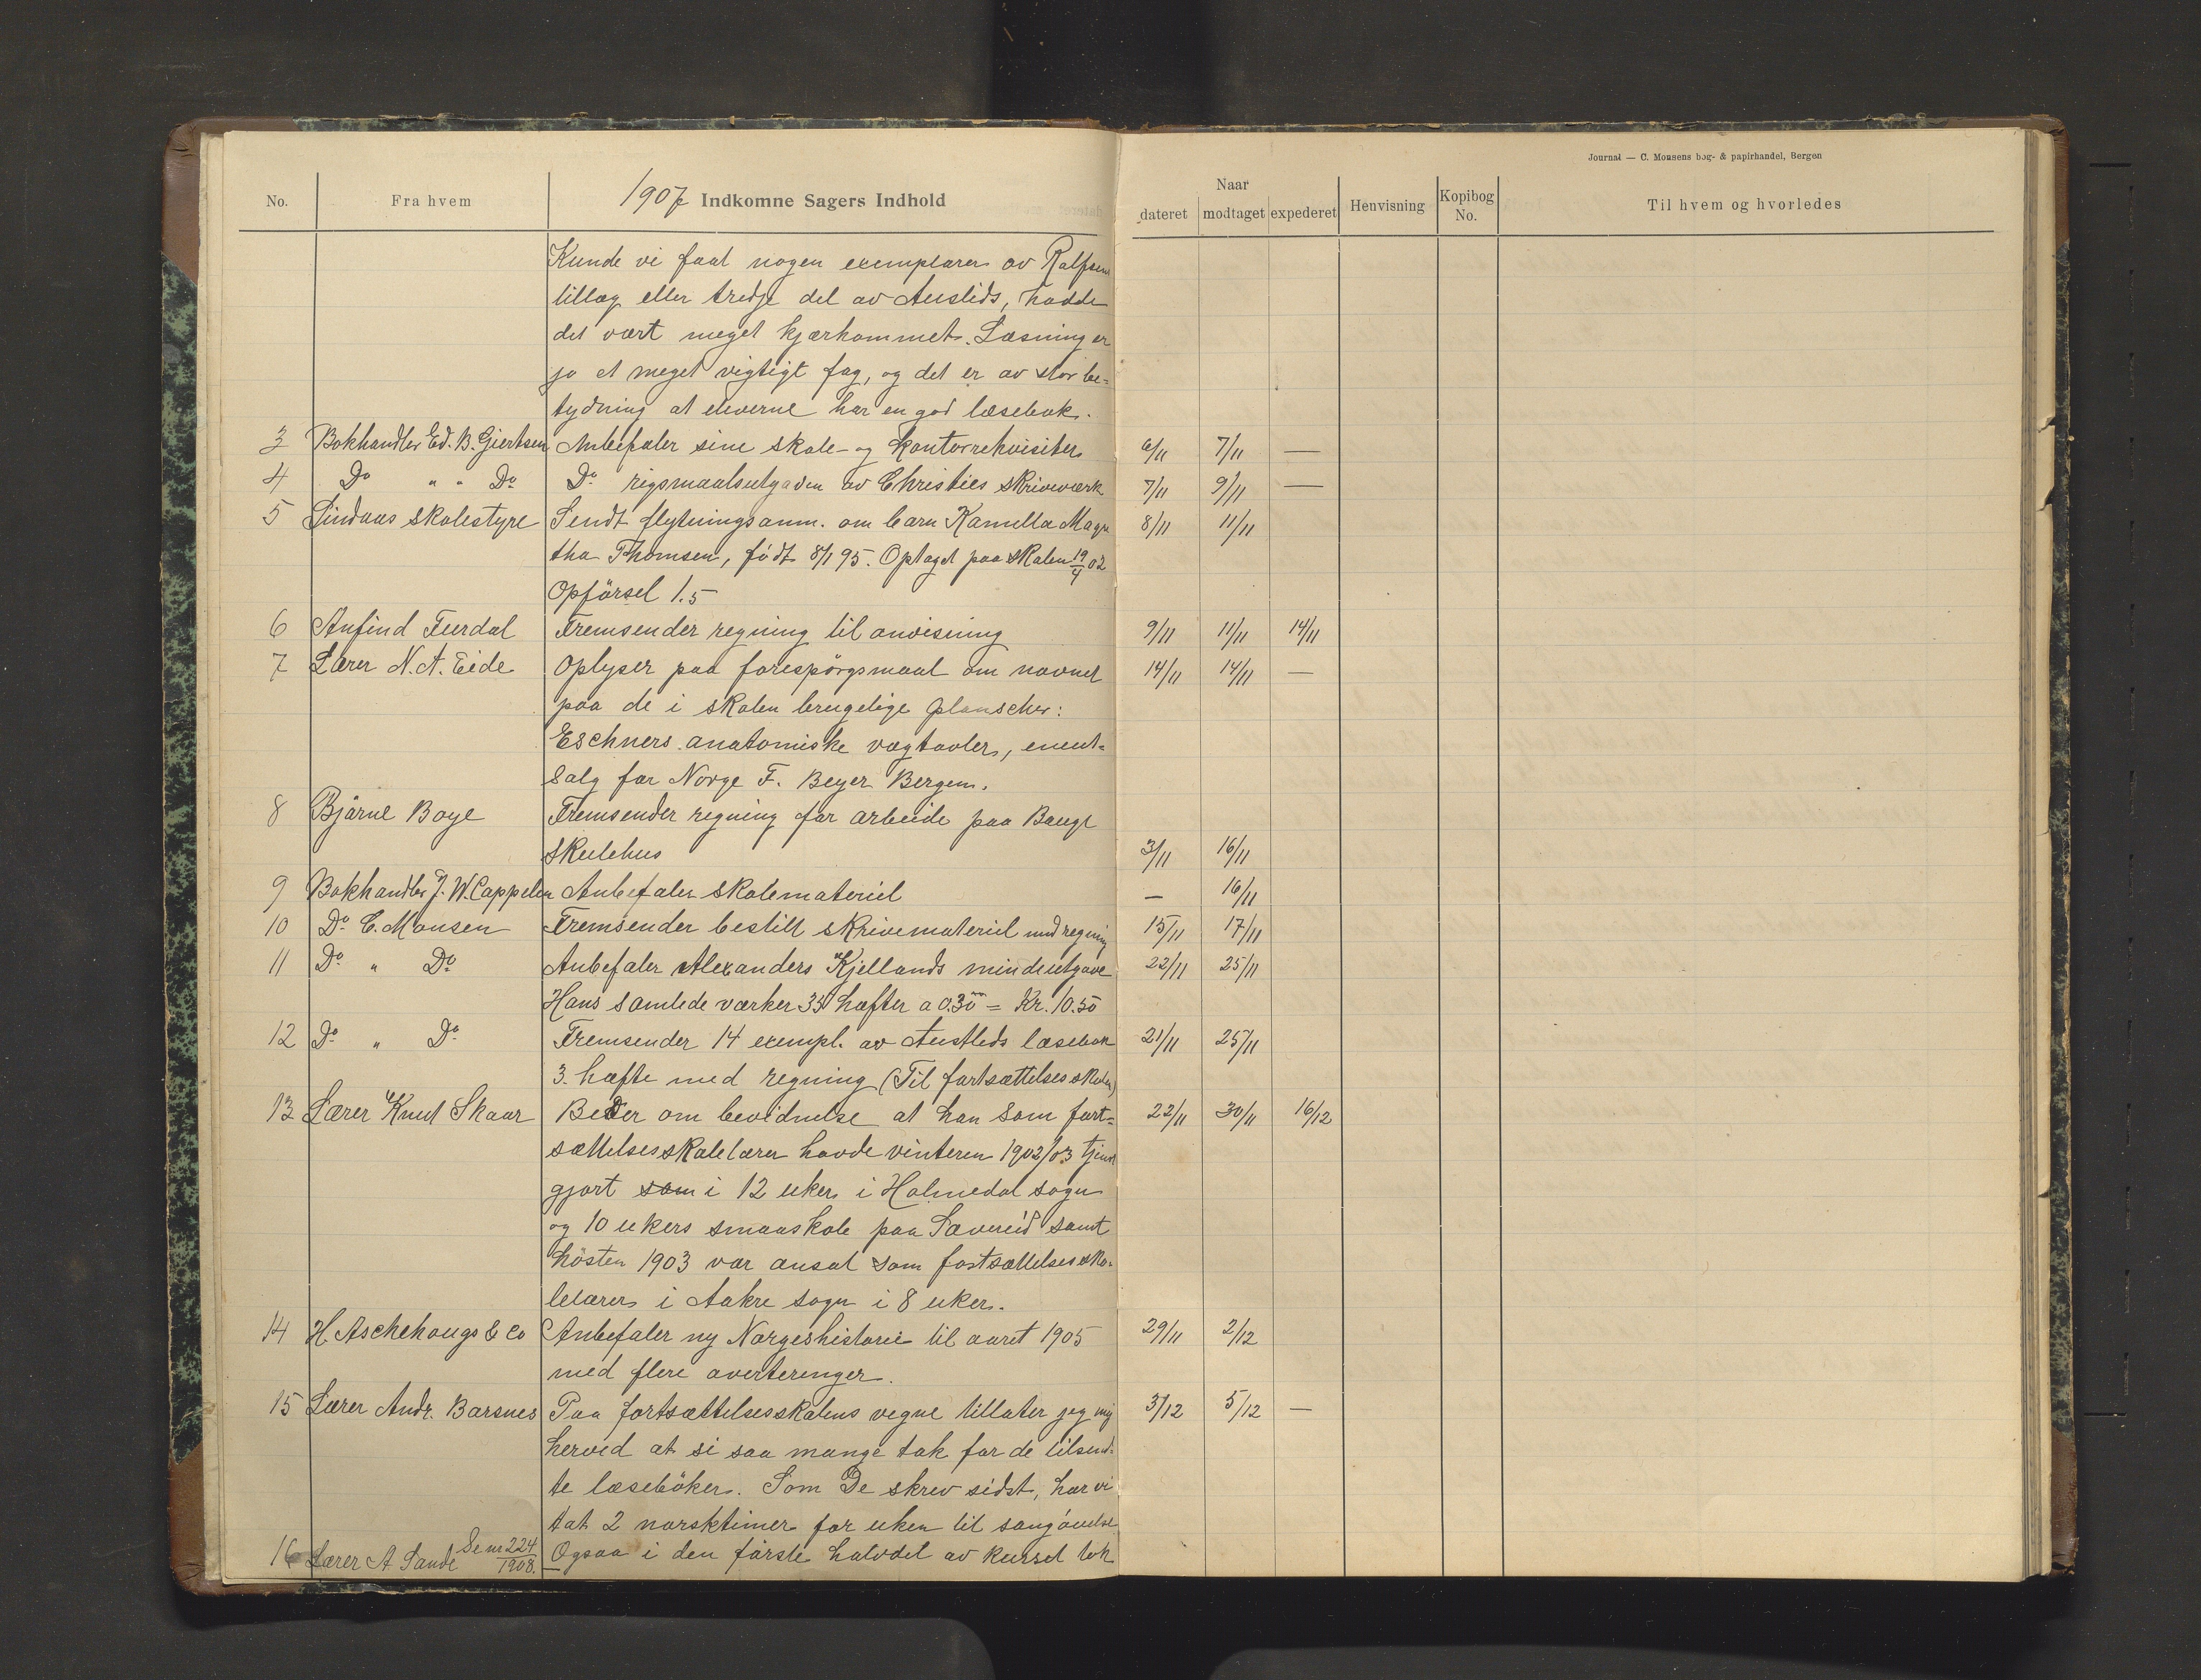 Journal — C. Monsens bog- & papirhandel, Bergen
No. Fra hvem 1907 Indkomne Sagers Indhold Naar dateret modtaget expederet Henvisning Kopibog No. Til hvem og hvorledes
Kunde vi faat nogen exemplarer av Rolfsens
tillæg eller tredje del av Austlids, hadde
det vært meget kjærkommet. Læsning er
jo et meget vigtigt fag, og det er av stor be-
tydning at eleverne har en god læsebok.
3 Bokhandler Ed. B. Giertsen Anbefaler sine skole- og kontorrekvisiter 6/11 7/11 —
4 Do " " Do Do rigsmaalsutgaven av Christies skriveverk 7/11 9/11 —
5 Lindaas skolestyre Sendt flytningsanm. om barn Kamilla Magn 8/11 11/11
tha Thomsen, født 8/1 95. Optaget paa skolen 19/4 02
Opførsel 1.5
6 Anfind Furdal Fremsender regning til anvisning 9/11 11/11 14/11
7 Lærer N. A. Eide Oplyser paa forespørgsmaal om navnet 14/11 14/11 —
paa de i skolen brugelige planscher:
Eschners anatomiske vægtavler, eneut-
salg for Norge F. Beyer Bergen.
8 Bjårne Boge Fremsender regning for arbeide paa Bauge
skulehus 3/11 16/11
9 Bokhandler J. W. Cappelen Anbefaler skolemateriel — 16/11
10 Do C. Monsen Fremsender bestilt skrivemateriel med regning 15/11 17/11
11 Do " Do Anbefaler Alexanders Kjellands mindeutgave 22/11 25/11
Hans samlede værker 35 hæfter a 0.30 = Kr. 10.50
12 Do " Do Fremsender 14 exempl. av Austlids læsebok 21/11 25/11
3. hæfte med regning (Til fortsættelsesskolen)
13 Lærer Knut Skaar Beder om bevidnelse at han som fort- 22/11 30/11 16/12
sættelsesskolelærer havde vinteren 1902/03 tjenst
gjort som i 12 uker i Holmedal sogn
og 10 ukers smaaskole paa Sævereid samt
høsten 1903 var ansat som fortsættelsessko-
lelærer i Aakre sogn i 8 uker.
14 H. Aschehougs & Co Anbefaler ny Norgeshistorie til aaret 1905 29/11 2/12
med flere averteringer.
15 Lærer Andr. Barsnes Paa fortsættelsesskolens vegne tillater jeg mig 3/12 5/12 —
herved at si saa mange tak for de tilsend-
te læsebøker. Som De skrev sidst, har vi
tat 2 norsktimer for uken til sangøvelse
16 Lærer A. Sande Se nr 224/1908. Ogsaa i den første halvdel av kurset tok